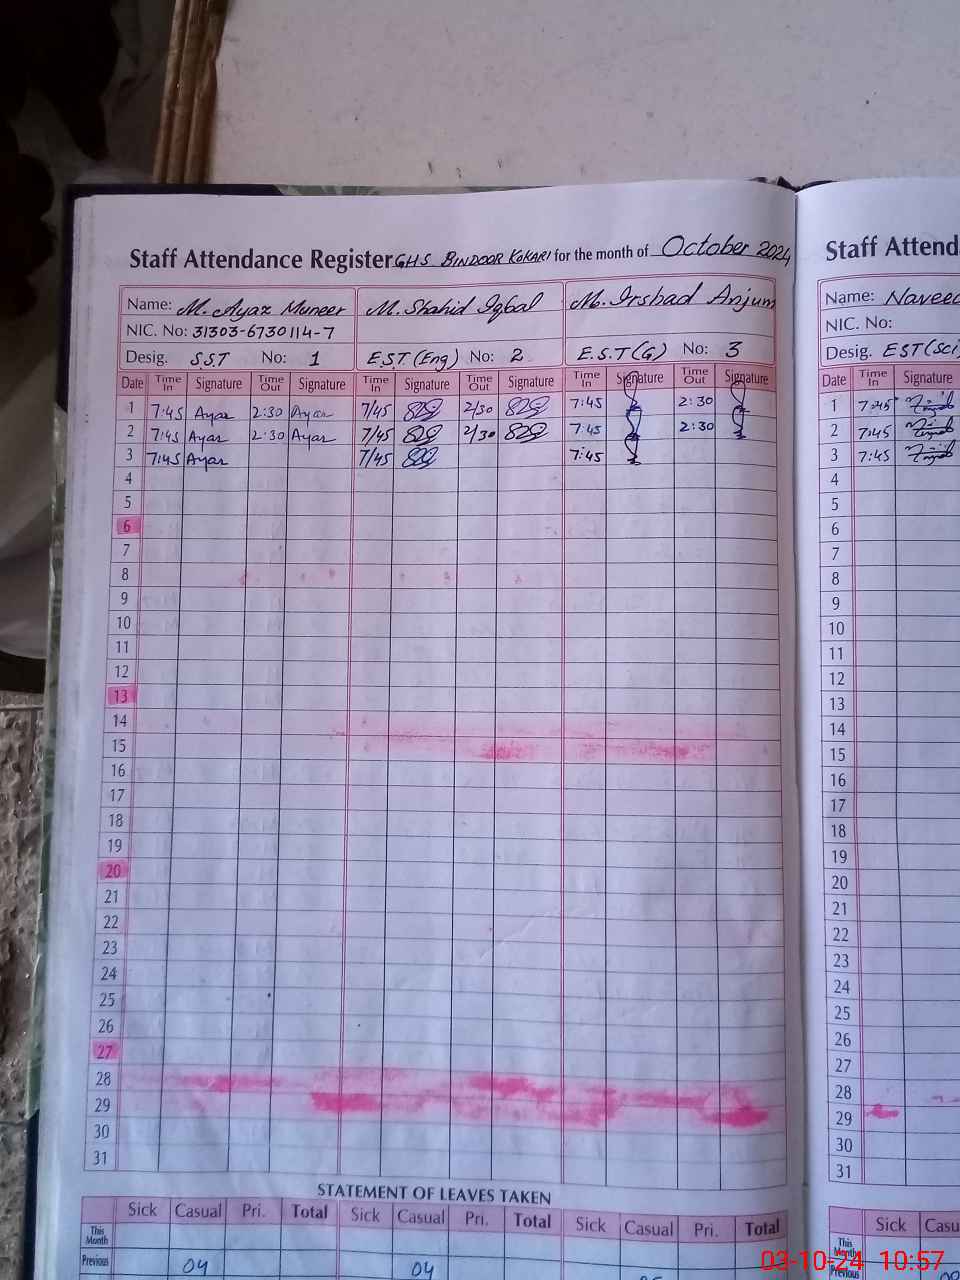 Staff Attendance Register GHS BINDOOR KOKARI for the month of October 2024
Name: M. Ayaz Muneer M. Shahid Iqbal M. Irshad Anjum
NIC. No: 31303-6730114-7
Desig. S.S.T No: 1 E.S.T (Eng) No: 2 E.S.T (G) No: 3
Date Time In Signature Time Out Signature Time In Signature Time Out Signature Time In Signature Time Out Signature
1 7:45 Ayaz 2:30 Ayaz 7/45 2/30 7:45 2:30
2 7:45 Ayaz 2:30 Ayaz 7/45 2/30 7:45 2:30
3 7:45 Ayaz 7/45 7:45
4
5
6
7
8
9
10
11
12
13
14
15
16
17
18
19
20
21
22
23
24
25
26
27
28
29
30
31
STATEMENT OF LEAVES TAKEN
Sick Casual Pri. Total Sick Casual Pri. Total Sick Casual Pri. Total
This Month
Previous 04 04
Staff Attend
Name: Naveed
NIC. No:
Desig. EST (Sci)
Date Time In Signature
1 7:45
2 7:45
3 7:45
4
5
6
7
8
9
10
11
12
13
14
15
16
17
18
19
20
21
22
23
24
25
26
27
28
29
30
31
Sick Casu
This Month
Previous
03-10-24 10:57